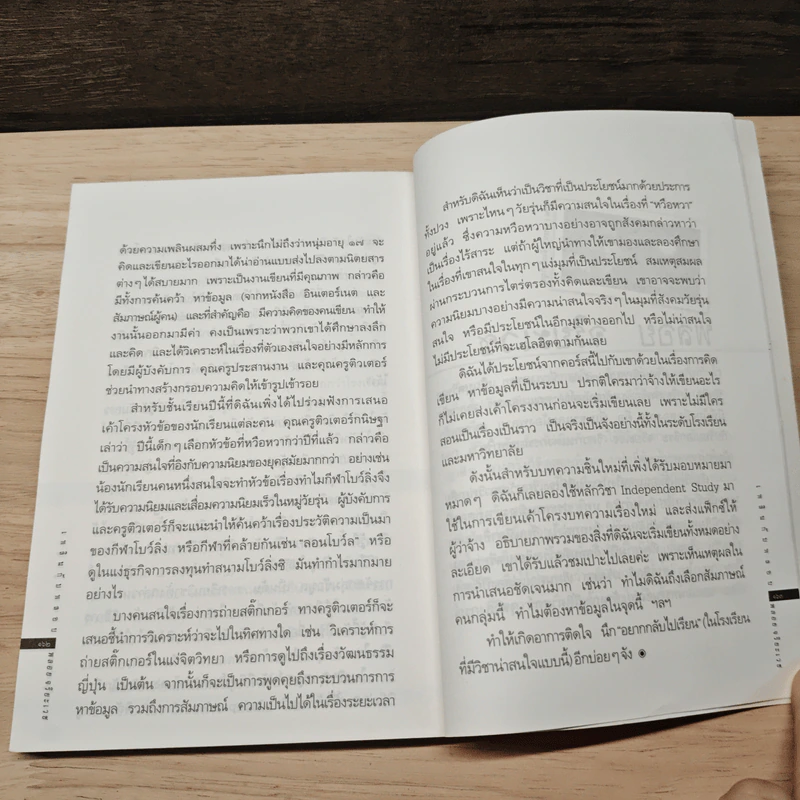 ด้วยความเพลินผสมทึ่ง เพราะนึกไม่ถึงว่าหนุ่มอายุ ๑๗ จะ
คิดและเขียนอะไรออกมาได้น่าอ่านแบบส่งไปลงตามนิตยสาร
ต่างๆ ได้สบายมาก เพราะเป็นงานเขียนที่มีคุณภาพ กล่าวคือ
มีทั้งการค้นคว้า หาข้อมูล (จากหนังสือ อินเตอร์เนต และ
สัมภาษณ์ผู้คน) และที่สำคัญคือ มีความคิดของคนเขียน ทำให้
งานนั้นออกมามีค่า คงเป็นเพราะว่าพวกเขาได้ศึกษาลงลึก
และคิด และได้วิเคราะห์ในเรื่องที่ตัวเองสนใจอย่างมีหลักการ
โดยมีผู้บังคับการ คุณครูประสานงาน และคุณครูติวเตอร์
ช่วยนำทางสร้างกรอบความคิดให้เข้ารูปเข้ารอย
สำหรับชั้นเรียนปีนี้ที่ดิฉันเพิ่งได้ไปร่วมฟังการเสนอ
เค้าโครงหัวข้อของนักเรียนแต่ละคน คุณครูติวเตอร์กนิษฐา
เล่าว่า ปีนี้เด็กๆ เลือกหัวข้อที่หรือหวากว่าปีที่แล้ว กล่าวคือ
เป็นความสนใจที่อิงกับความนิยมของยุคสมัยมากกว่า อย่างเช่น
น้องนักเรียนคนหนึ่งสนใจจะทำหัวข้อเรื่องทำไมกีฬาโบว์ลิ่งจึง
ได้รับความนิยมและเสื่อมความนิยมเร็วในหมู่วัยรุ่น ผู้บังคับการ
และครูติวเตอร์ก็จะแนะนำให้ค้นคว้าเรื่องประวัติความเป็นมา
ของกีฬาโบว์ลิ่ง หรือกีฬาที่คล้ายกันเช่น "ลอนโบว์ล" หรือ
ดูในแง่ธุรกิจการลงทุนทำสนามโบว์ลิ่งซิ มันทำกำไรมากมาย
อย่างไร
บางคนสนใจเรื่องการถ่ายสติ๊กเกอร์ ทางครูติวเตอร์ก็จะ
เสนอชี้นำการวิเคราะห์ว่าจะไปในทิศทางใด เช่น วิเคราะห์การ
ถ่ายสติ๊กเกอร์ในแง่จิตวิทยา หรือการดูไปถึงเรื่องวัฒนธรรม
ญี่ปุ่น เป็นต้น จากนั้นก็จะเป็นการพูดคุยถึงกระบวนการการ
หาข้อมูล รวมถึงการสัมภาษณ์ ความเป็นไปได้ในเรื่องระยะเวลา
สำหรับดิฉันเห็นว่าเป็นวิชาที่เป็นประโยชน์มากด้วยประการ
ทั้งปวง เพราะไหนๆ วัยรุ่นก็มีความสนใจในเรื่องที่ "หรือหวา"
อยู่แล้ว ซึ่งความหรือหวาบางอย่างอาจถูกสังคมกล่าวหาว่า
เป็นเรื่องไร้สาระ แต่ถ้าผู้ใหญ่นำทางให้เขามองและลองศึกษา
ในเรื่องที่เขาสนใจในทุกๆ แง่มุมที่เป็นประโยชน์ สมเหตุสมผล
ผ่านกระบวนการไตร่ตรองทั้งคิดและเขียน เขาอาจจะพบว่า
ความนิยมบางอย่างมีความน่าสนใจจริงๆ ในมุมที่สังคมวัยรุ่น
สนใจ หรือมีประโยชน์ในอีกมุมต่างออกไป หรือไม่น่าสนใจ
ไม่มีประโยชน์ที่จะเฮโลฮิตตามกันเลย
ดิฉันได้ประโยชน์จากคอร์สนี้ไปกับเขาด้วยในเรื่องการคิด
เขียน หาข้อมูลที่เป็นระบบ ปรกติใครมาว่าจ้างให้เขียนอะไร
ก็ไม่เคยส่งเค้าโครงงานก่อนจะเริ่มเขียนเลย เพราะไม่มีใคร
สอนเป็นเรื่องเป็นราว เป็นจริงเป็นจังอย่างนี้ทั้งในระดับโรงเรียน
และมหาวิทยาลัย
ดังนั้นสำหรับบทความชิ้นใหม่ที่เพิ่งได้รับมอบหมายมา
หมาดๆ ดิฉันก็เลยลองใช้หลักวิชา Independent Study มา
ใช้ในการเขียนเค้าโครงบทความเรื่องใหม่ และส่งแฟ็กซ์ให้
ผู้ว่าจ้าง อธิบายภาพรวมของสิ่งที่ดิฉันจะเริ่มเขียนทั้งหมดอย่าง
ละเอียด เขาได้รับแล้วชมเปาะไปเลยค่ะ เพราะเห็นเหตุผลใน
การนำเสนอชัดเจนมาก เช่นว่า ทำไมดิฉันถึงเลือกสัมภาษณ์
คนกลุ่มนี้ ทำไมต้องหาข้อมูลในจุดนี้ ฯลฯ
ทำให้เกิดอาการติดใจ นึก "อยากกลับไปเรียน" (ในโรงเรียน
ที่มีวิชาน่าสนใจแบบนี้) อีกบ่อยๆ จัง